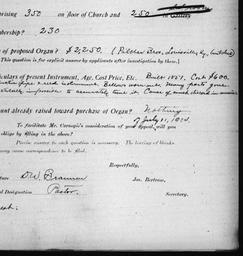 rising 350 on floor of Church and 250 in Gallery
bership? 230
of proposed Organ? $2,250. (Pilcher Bros., Louisville, Ky.
(This question is for explicit answer by applicants after investigation by them.)
culars of present Instrument, Age, Cost Price, Etc. Built 1851. Cost $600.
reed instrument. Bellows worn out. Many parts gone.
impossible to accurately tune it. Cause of much discord in
unt already raised toward purchase of Organ? Nothing
of July 11, 1912.
To facilitate Mr. Carnegie's consideration of your Appeal, will you
oblige by filling in the above?
Precise answer to each question is necessary. The leaving of blanks
may cause correspondence to be filed.
Respectfully,
ture D W Brannen Jas. Bertram,
al Designation Pastor Secretary.